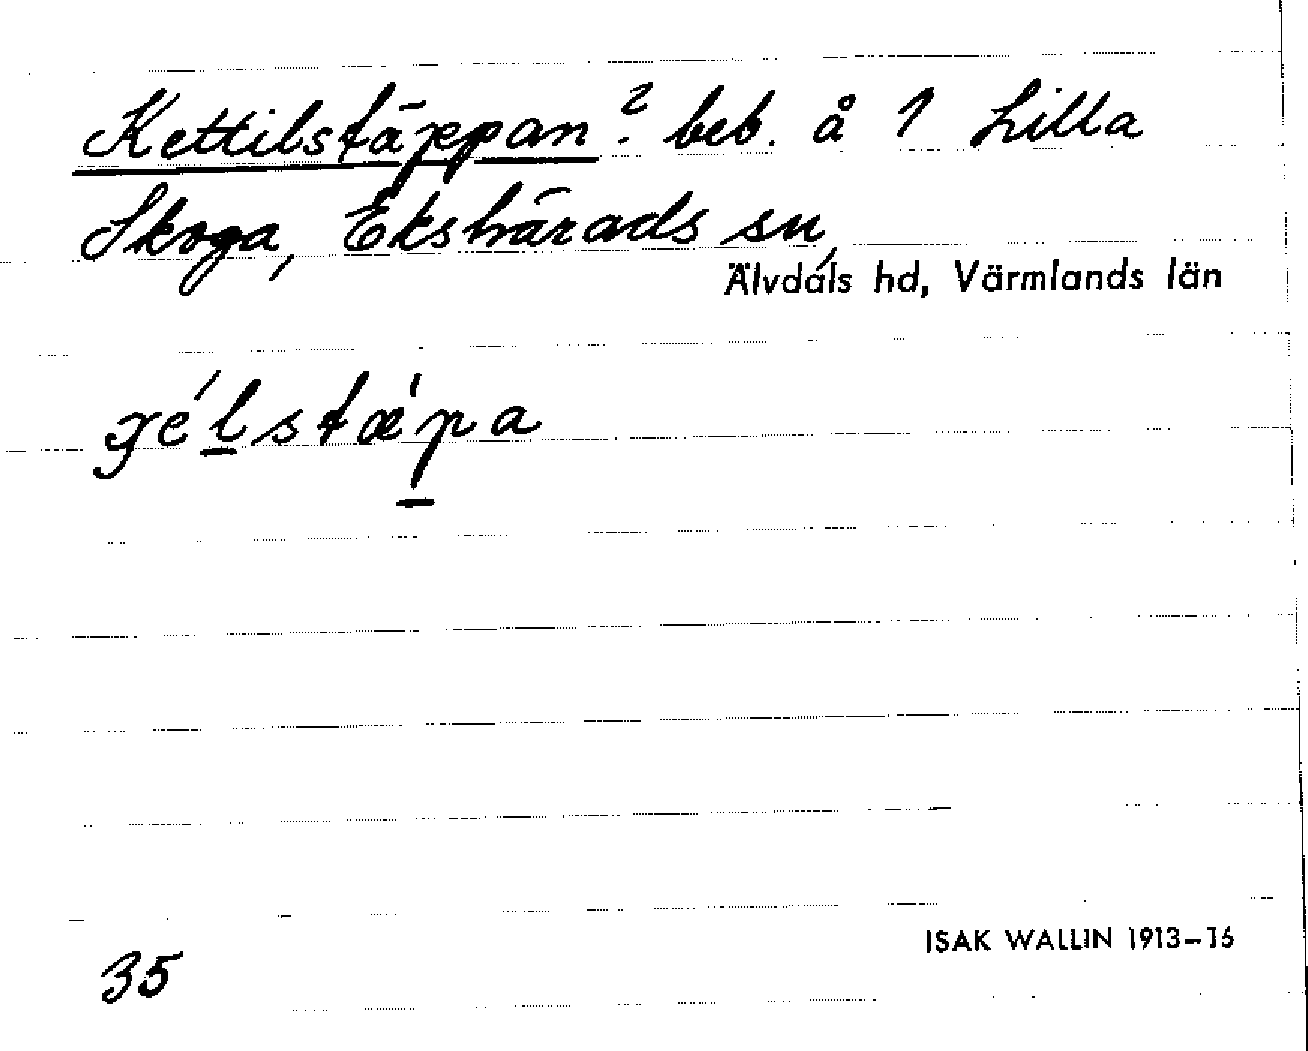 Kettilstäppan? beb. å 1 Lilla
Skoga, Ekshärads sn,
Älvdals hd, Värmlands län
gé́l̲stæ̍p̲a
ISAK WALLIN 1913–16
35